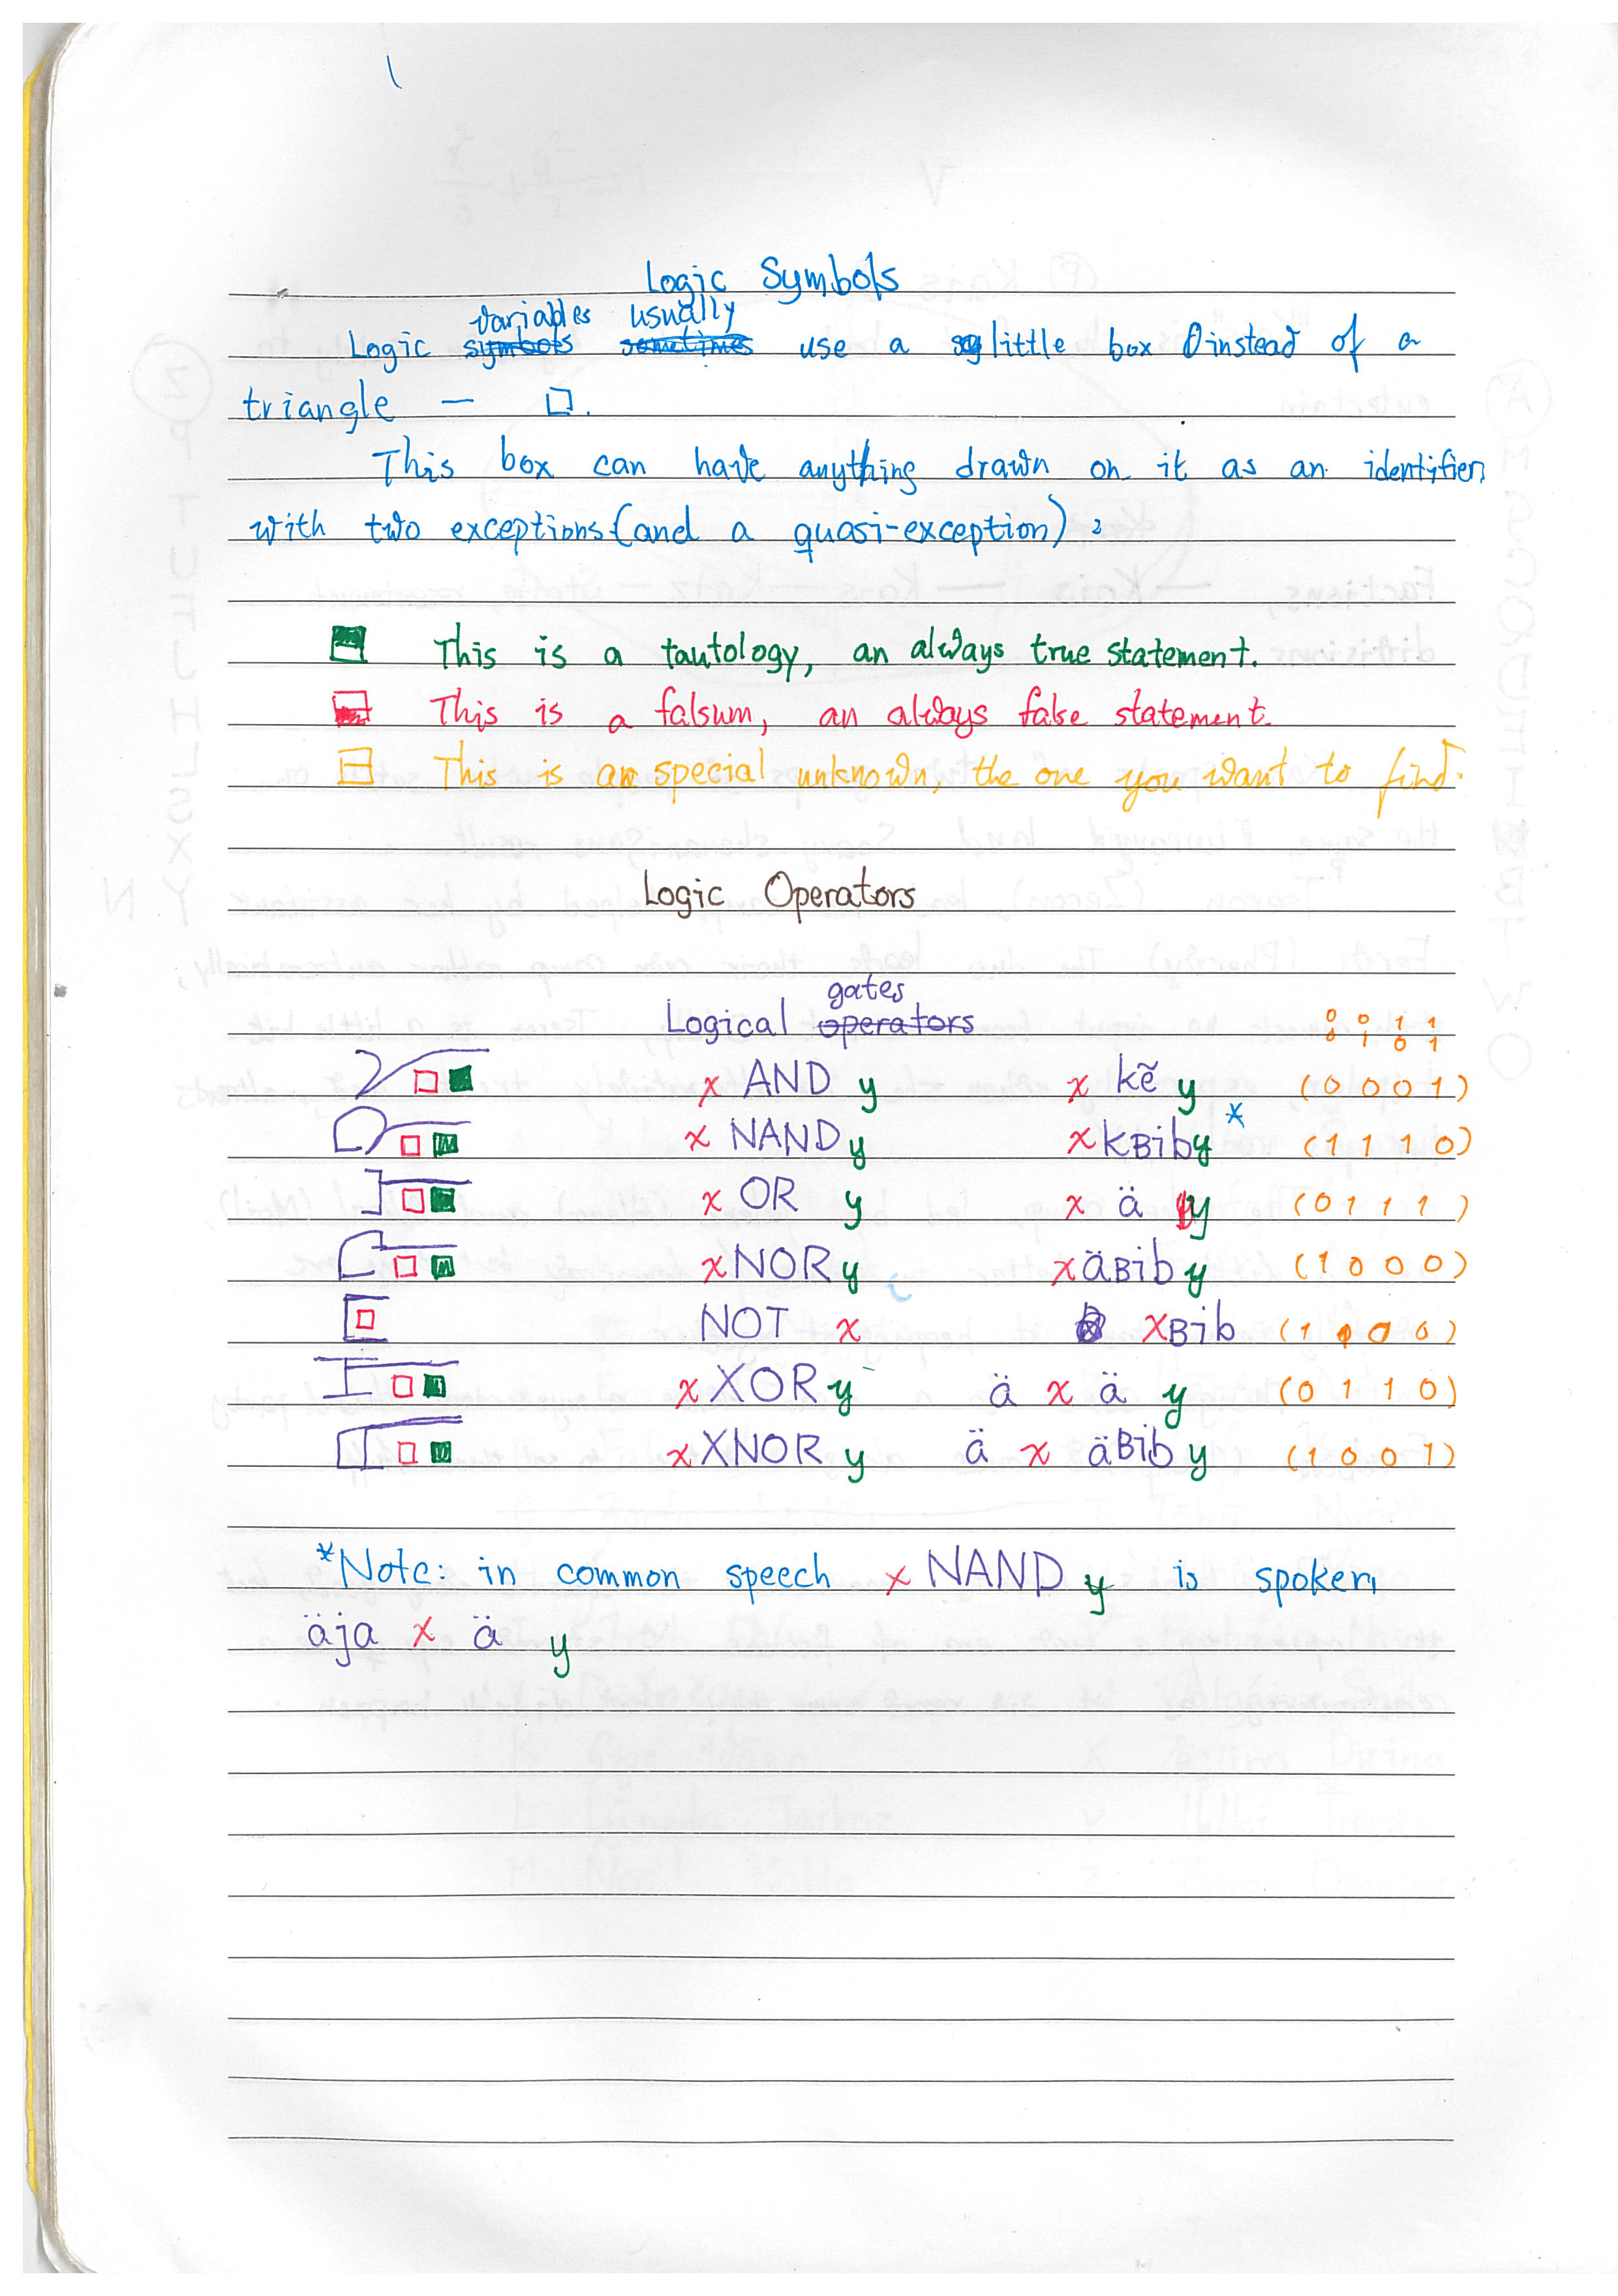 Logic Symbols
variables usually
Logic symbols sometimes use a little box instead of a
triangle — □.
This box can have anything drawn on it as an identifier,
with two exceptions (and a quasi-exception):
This is a tautology, an always true statement.
This is a falsum, an always false statement.
This is a special unknown, the one you want to find.
Logic Operators
gates
Logical operators
0 0 1 1
0 1 0 1
x AND y x kẽ y (0 0 0 1)
x NAND y x kʙib y * (1 1 1 0)
x OR y x ä y (0 1 1 1)
x NOR y x äʙib y (1 0 0 0)
NOT x x ʙib (1 1 0 0)
x XOR y ä x ä y (0 1 1 0)
x XNOR y ä x äʙib y (1 0 0 1)
*Note: in common speech x NAND y is spoken
äja x ä y